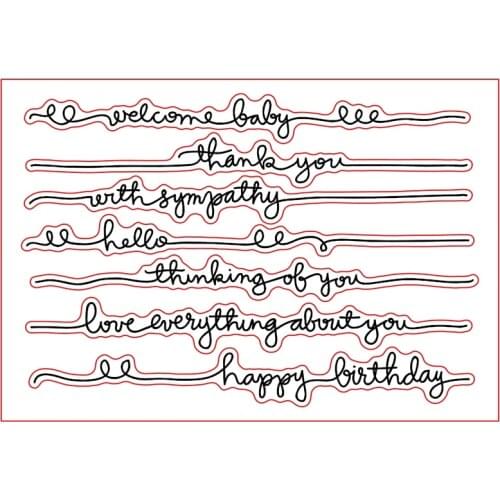 welcome baby
thank you
with sympathy
hello
thinking of you
love everything about you
happy birthday